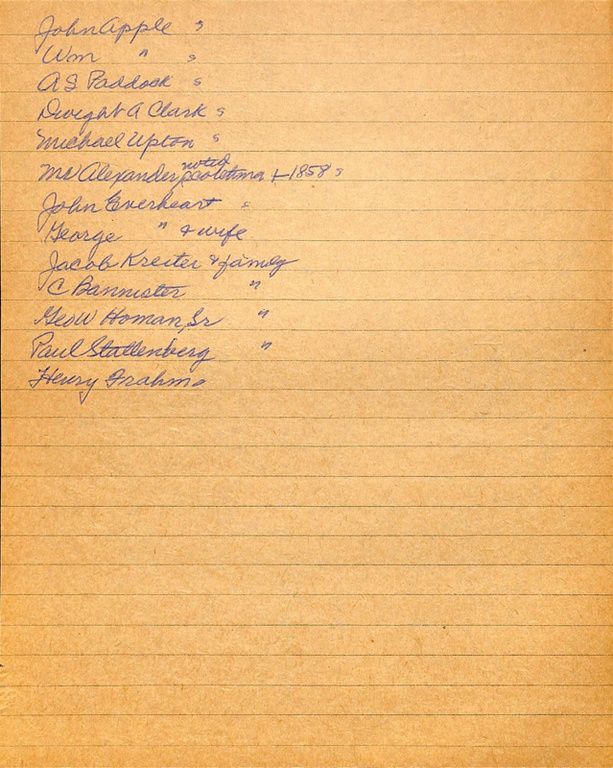 John Apple s
Wm " s
A S Paddock s
Dwight A Clark s
Michael Upton s
noted
Mc Alexander + 1858 s
John Everheart s
George " & wife
Jacob Kreiter & family
C Bannister "
Geo W Homan, Sr "
Paul Staltenberg "
Henry Frahm s